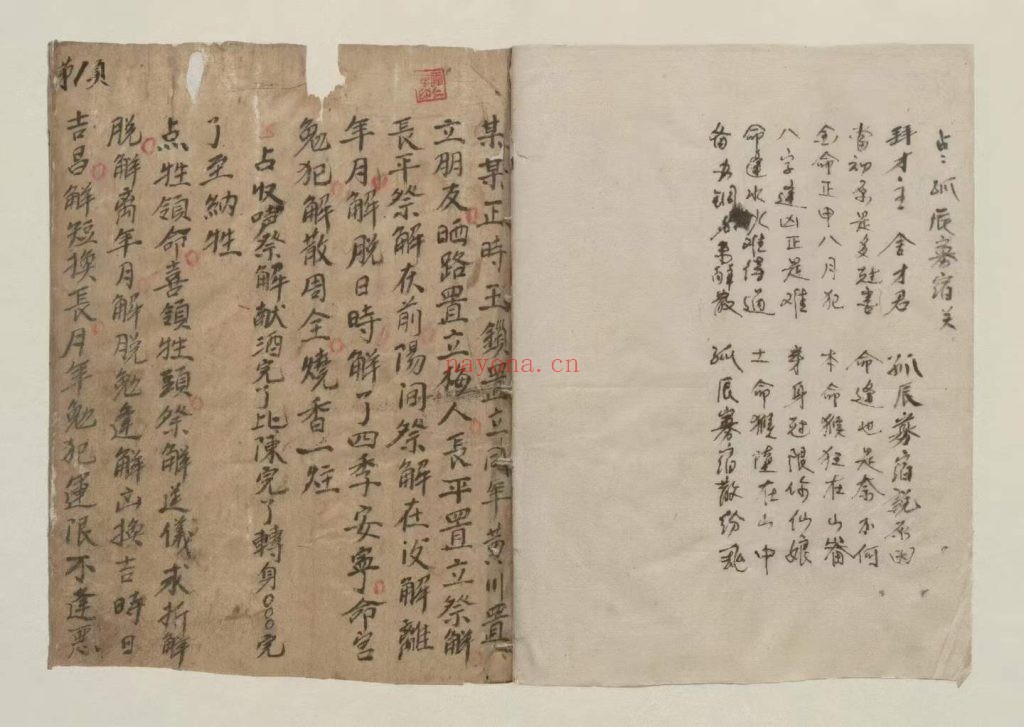 占孤辰寡宿关
拜才主 舍才君 孤辰寡宿説原因
當初原是多尅害 命逢也是奈不何
全命正申八月犯 本命猴狂在山
八字逢凶正是难 身身尅限你仙娘
命逢水火难得過 土命猴 在山中
备办铜 来解散 孤辰寡宿散纷
某某正時玉鎖 立同年黄川置
立朋友晒路置立梅人長平置立祭解
長平祭解在前陽间祭解在沒解離
年月解脱日時解了四季安寧命宫
免犯解散周全燒香一炷
占收 祭解献酒完了比陳完了轉身○○○完
了至納牲
点牲領命喜領牲頭祭解送儀求折解
脱解离年月解脱免逢解凶换吉時日
吉昌解短換長月年免犯運限不逢惡
第1頁
nayona.cn